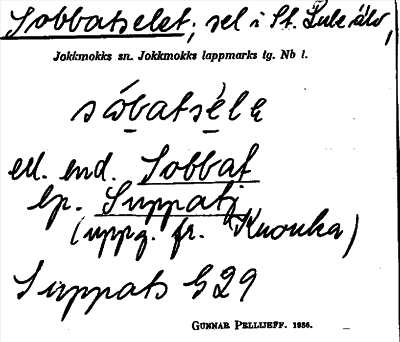 Sobbatselet; sel i St. Lule älv,
Jokkmokks sn. Jokkmokks lappmarks tg. Nb l.
sóbatséle
ell. end. Sobbat
lp. Suppatj
(uppg. fr. Knouka)
Suppats G29
GUNNAR PELLIJEFF. 1956.